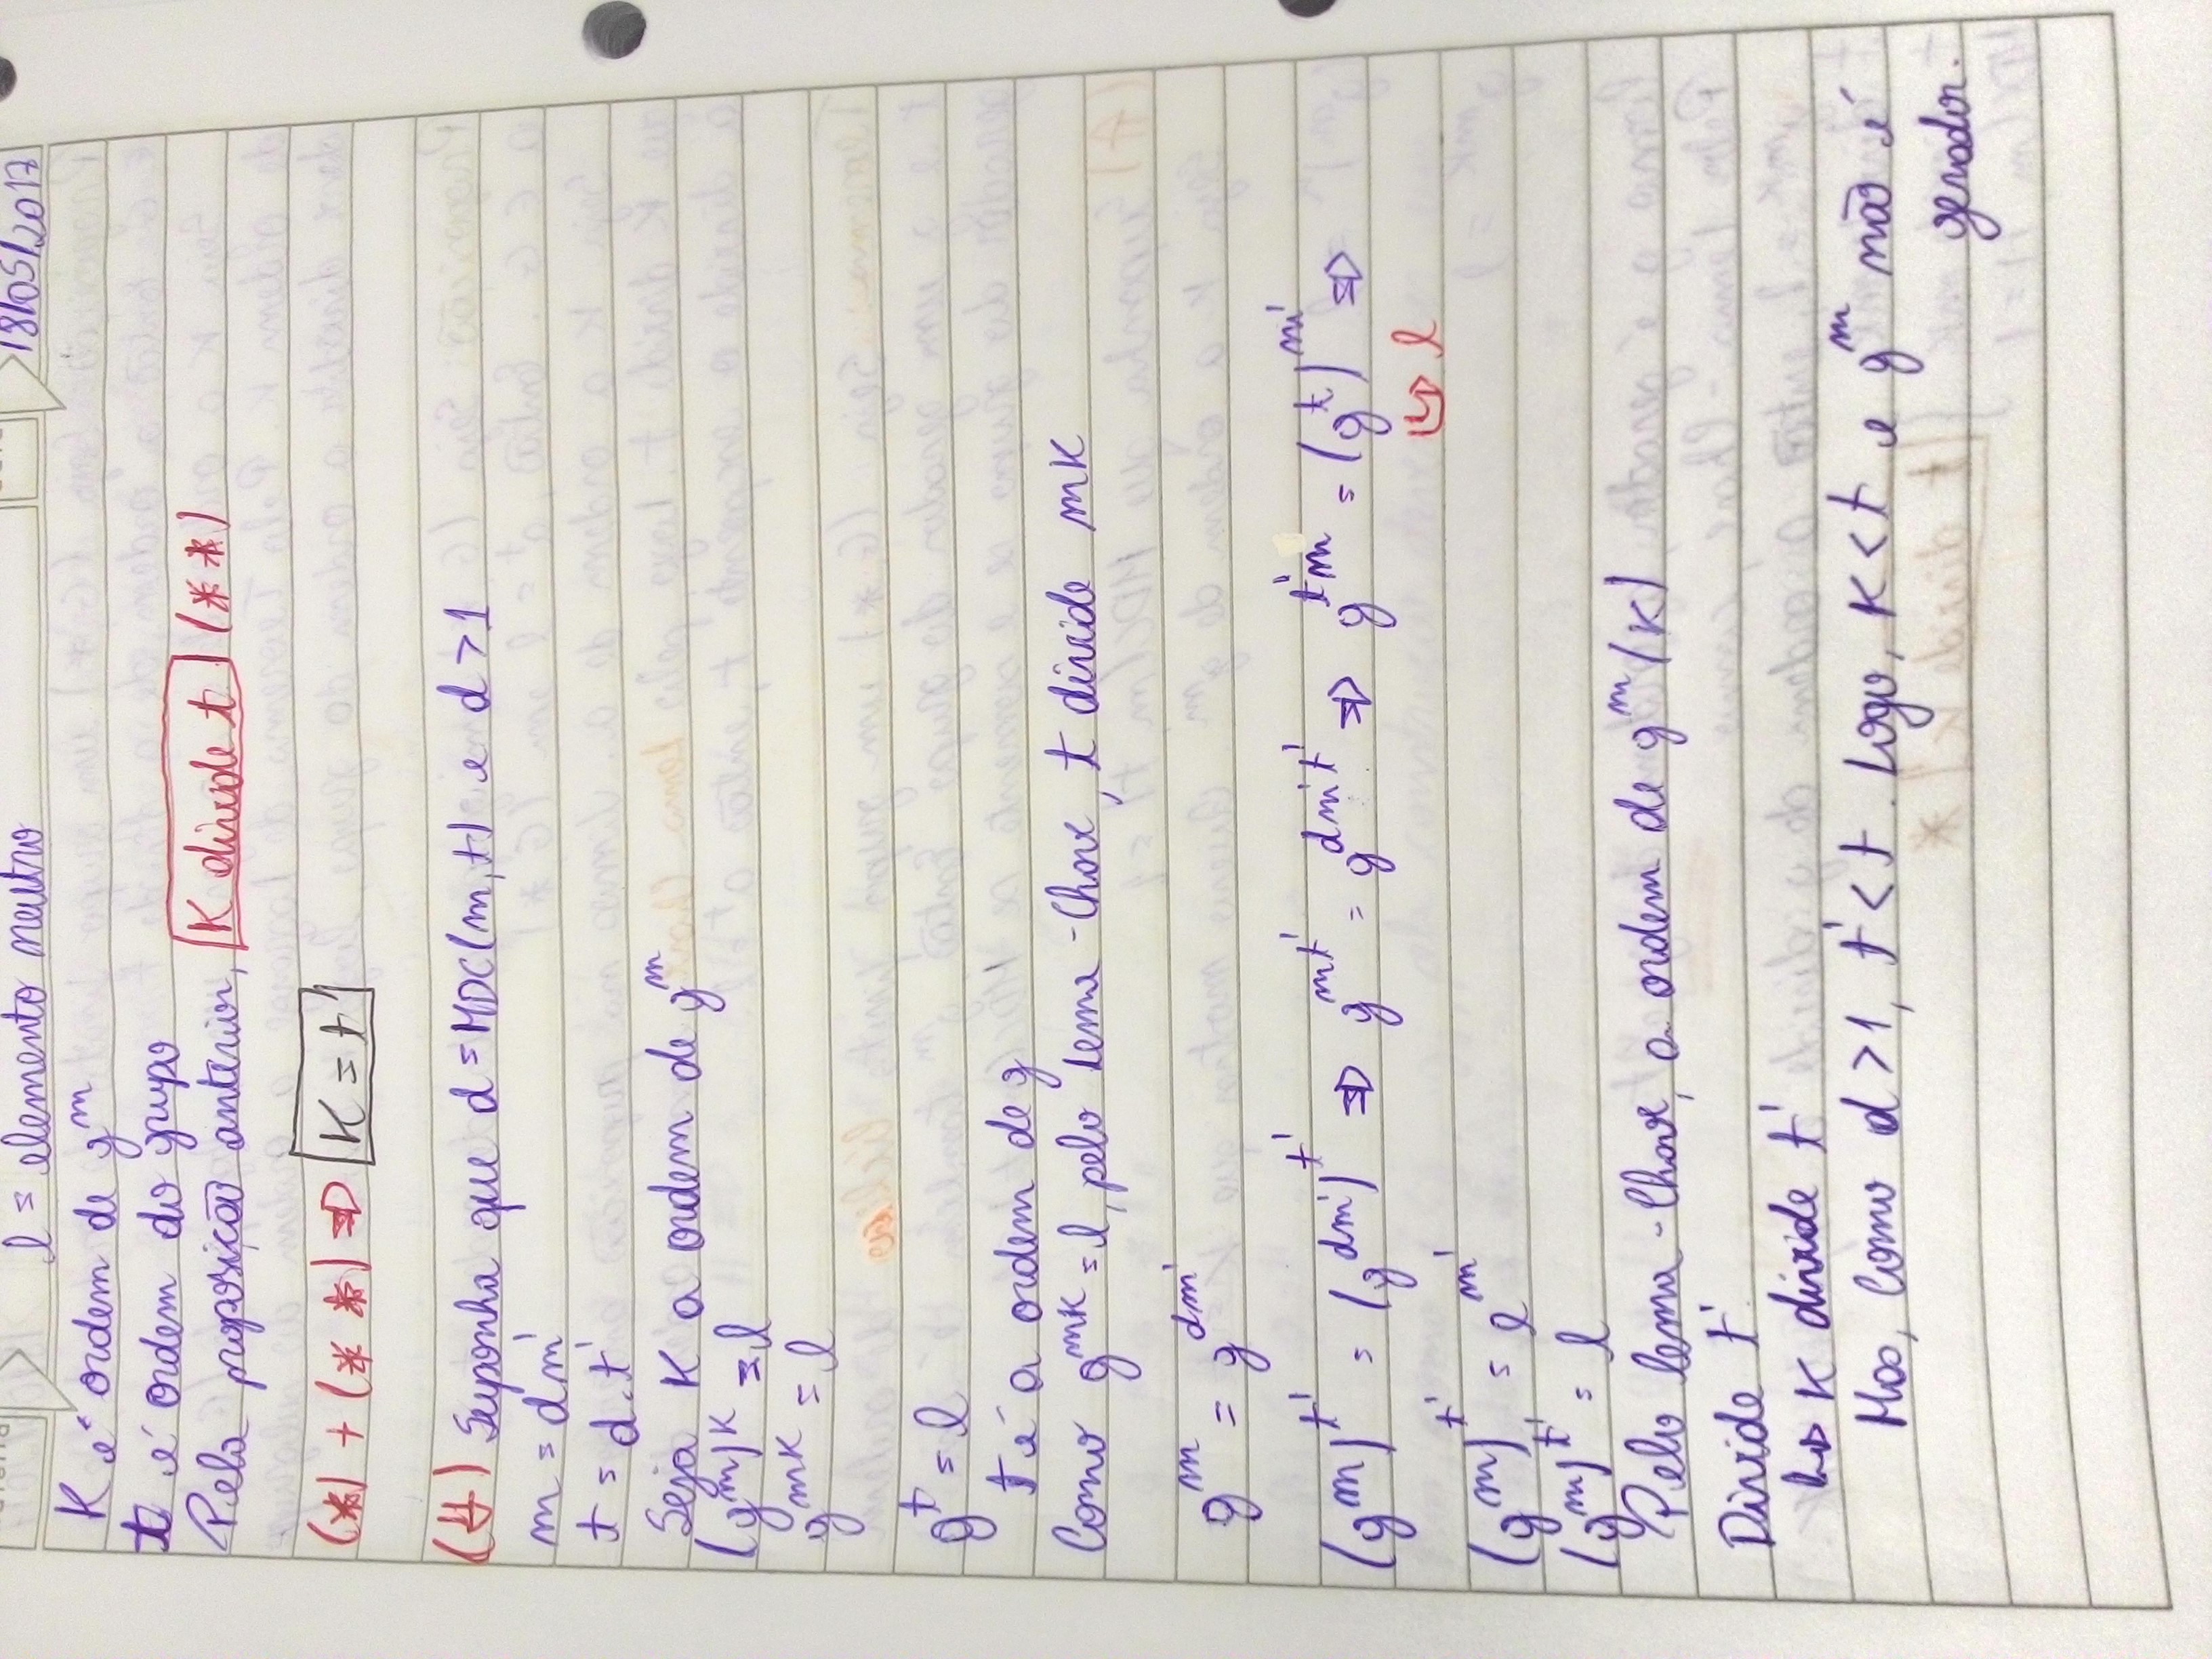 l = elemento neutro
18/05/2017
K é ordem de g^m
t é ordem do grupo
Pela proposição anterior, K divide t (**)
(*) + (**) ⇒ K = t
(4) Suponha que d = MDC(m,t) e d > 1
m = dm'
t = d.t'
Seja K a ordem de g^m
(g^m)^K = l
g^mK = l
g^t = l
t é a ordem de g
Como g^mK = l, pelo Lema-Chave, t divide mK
g^m = g^dm'
(g^m)^t' = (g^dm')^t' ⇒ g^mt' = g^dm't' ⇒ g^t'm = (g^t)^m' ⇒
↳ l
(g^m)^t' = e^m'
(g^m)^t' = l
Pelo lema-Chave, a ordem de g^m (K)
Divide t'
↳ K divide t'
Mas, como d > 1, t' < t. Logo, K < t e g^m não é
gerador.